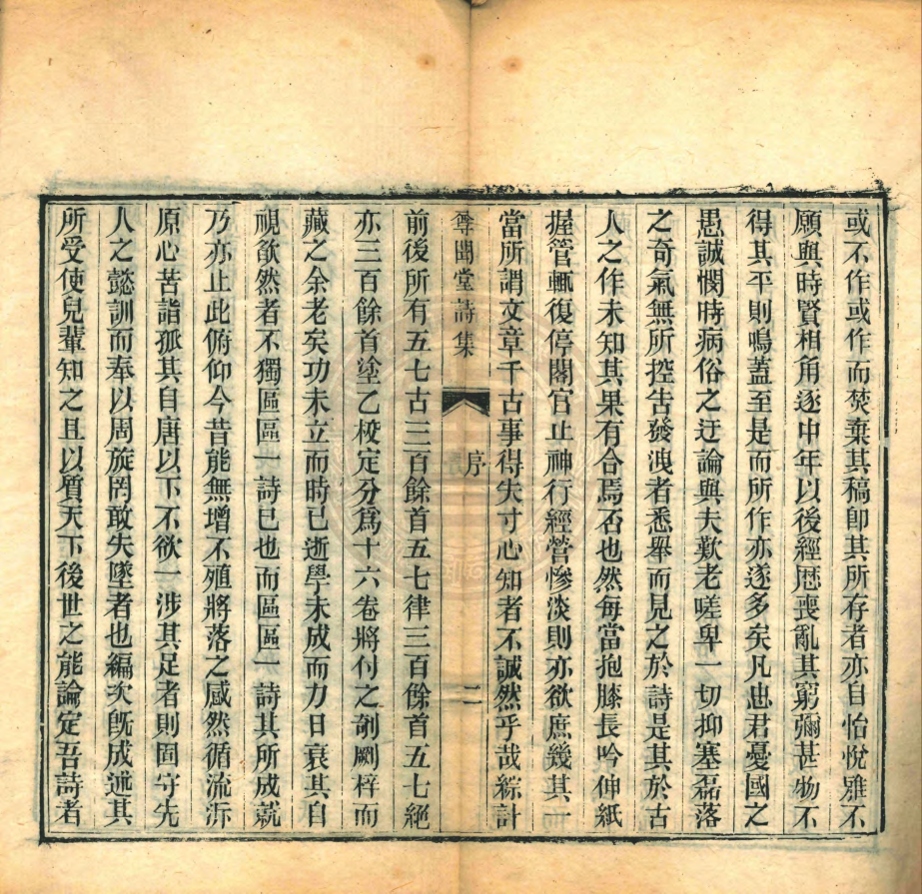 或不作或作而焚棄其稿卽其所存者亦自怡悅雅不
願與時賢相角逐中年以後經厯喪亂其窮彌甚物不
得其平則鳴蓋至是而所作亦遂多矣凡忠君憂國之
愚誠憫時病俗之迂論與夫歎老嗟卑一切抑塞磊落
之奇氣無所控告發洩者悉舉而見之於詩是其於古
人之作未知其果有合焉否也然每當抱膝長吟伸紙
握管輒復停閣官止神行經營慘淡則亦欲庶幾其一
當所謂文章千古事得失寸心知者不誠然乎哉綜計
尊聞堂詩集 序 二
前後所有五七古三百餘首五七律三百餘首五七絕
亦三百餘首塗乙校定分爲十六卷將付之剞劂梓而
藏之余老矣功未立而時已逝學未成而力日衰其自
視欿然者不獨區區一詩已也而區區一詩其所成就
乃亦止此俯仰今昔能無增不殖將落之感然循流泝
原心苦詣孤其自唐以下不欲一涉其足者則固守先
人之懿訓而奉以周旋罔敢失墜者也編次旣成述其
所受使兒輩知之且以質天下後世之能論定吾詩者